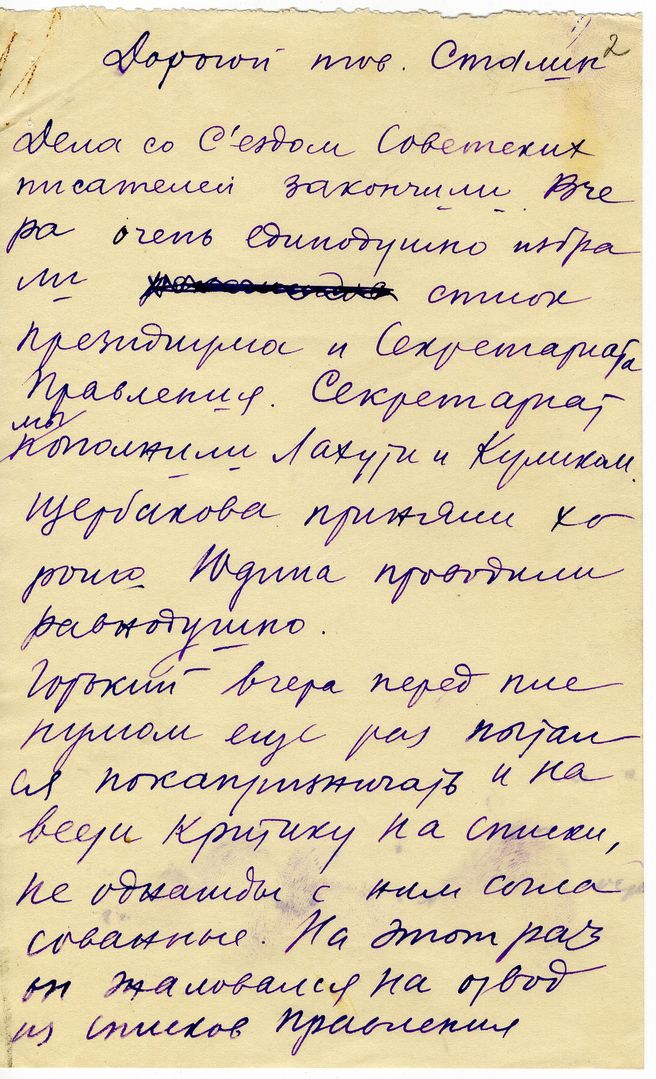 2
Дорогой тов. Сталин
Дела со С'ездом Советских
писателей закончили. Вче
ра очень единодушно избра
ли список
президиума и Секретариата
Правления. Секретариат
мы
пополнили Лахути и Куликом.
Щербакова приняли хо
рошо Юдина проводили
равнодушно.
Горький вчера перед пле
нумом еще раз пытал
ся покапризничать и на
вести критику на списки,
не однажды с ним согла
сованные. На этот раз
он жаловался на отвод
из списков правления